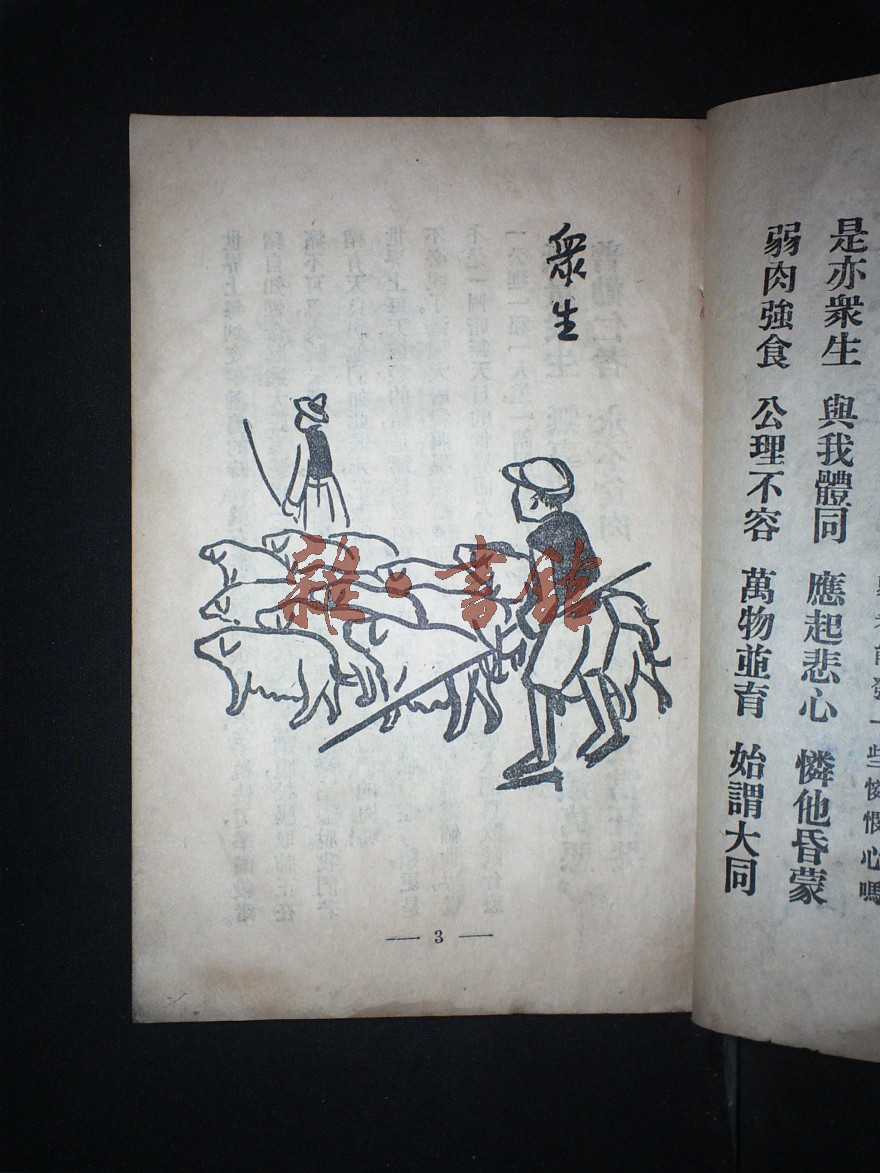 能發一些憐憫心嗎
是亦衆生 與我體同 應起悲心 憐他昏蒙
弱肉強食 公理不容 萬物並育 始謂大同
衆生
雜·書館
— 3 —